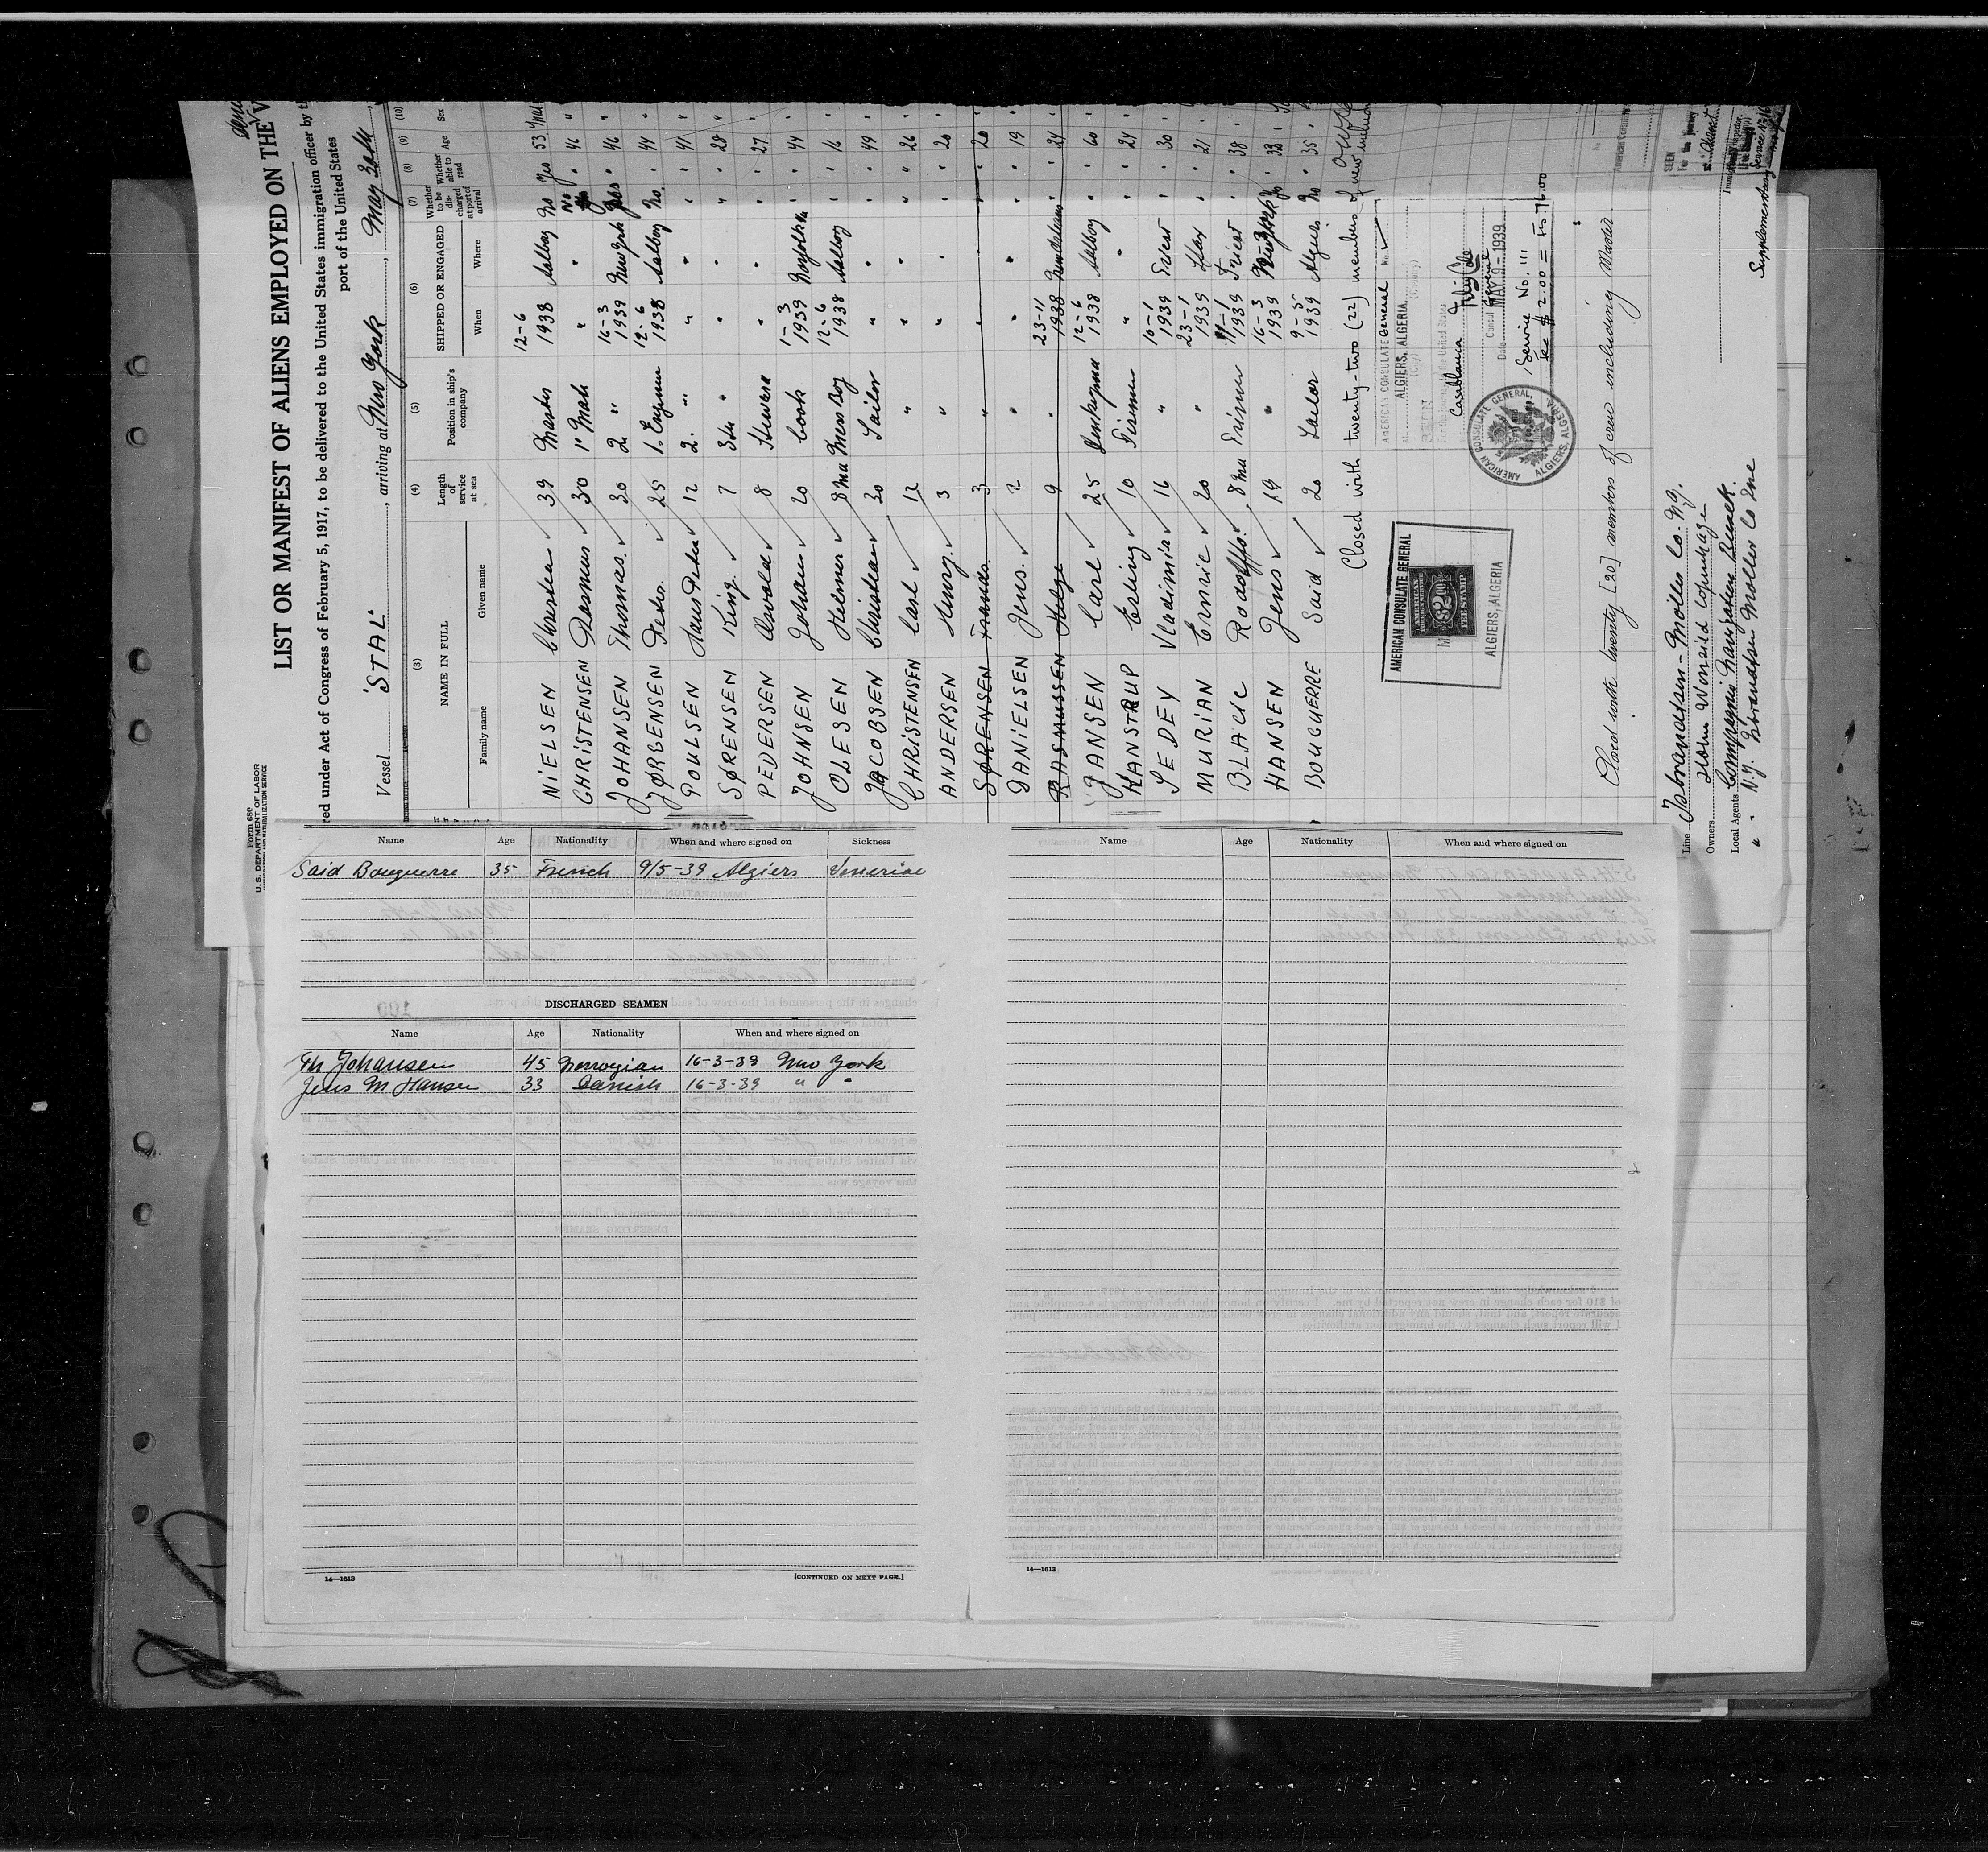 Form 680
U.S. DEPARTMENT OF LABOR
IMMIGRATION AND NATURALIZATION SERVICE
LIST OR MANIFEST OF ALIENS EMPLOYED ON THE V
red under Act of Congress of February 5, 1917, to be delivered to the United States immigration officer by t
port of the United States
Vessel "STAL" , arriving at New York , May 30th ,
(3) (4) (5) (6) (7) (8) (9) (10)
NAME IN FULL Length of service at sea Position in ship's company SHIPPED OR ENGAGED Whether to be discharged at port of arrival Whether able to read Age Sex
Family name Given name When Where
NIELSEN Christian 39 Master 12-6 1938 Aalborg No Yes 53
CHRISTENSEN Rasmus 30 1" Mate " " No " 46 "
JOHANSEN Thomas 30 2 " 16-3 1939 New York Yes " 46 "
JØRGENSEN Petro 25 1. Engineer 12-6 1938 Aalborg No. " 44 "
POULSEN Hans Peter 12 2. " " " " " 41 "
SØRENSEN King 7 3die " " " " " 28 "
PEDERSEN Oswald 8 Steward " " " " 27 "
JOHNSEN Johan 20 Cook 1-3 1939 Norfolk Va " " 44 "
OLESEN Helmer 8 mo Mess Boy 12-6 1938 Aalborg " " 16 "
JACOBSEN Christian 30 Sailor " " " " 49 "
CHRISTENSEN Carl 12 " " " " " 26 "
ANDERSEN Henry 3 " " " " " 20 "
SØRENSEN Frands 3 " " " " " 20 "
DANIELSEN Jens 2 " " " " " 19 "
RASMUSSEN Helge 9 " 23-11 1938 New Orleans " " 24 "
JANSEN Carl 25 Donkeyman 12-6 1938 Aalborg " " 60 "
KANSTRUP Erling 10 Fireman " " " " 24 "
SEDEY Vladimir 16 " 10-1 1939 Triest " " 30 "
MURIAN Enric 20 " 23-1 1939 Sfax " " 21 "
BLACIC Rodolffo. 8 mo Fireman 11-1 1939 Triest " " 38 "
HANSEN Jens 19 " 16-3 1939 New York " 33 "
BOUGUERRE Said 20 Sailor 9-5 1939 Algiers No " 35 "
Closed with twenty-two (22) members of crew including
AMERICAN CONSULATE General
ALGIERS, ALGERIA.
Casablanca
Consul General
Date MAY 9 - 1939
Service No. 111
Fee $ 2.00 = Frs 76.00
AMERICAN CONSULATE GENERAL, ALGIERS, ALGERIA
AMERICAN CONSULATE GENERAL
AMERICAN
$2.00
FEE STAMP
ALGIERS, ALGERIA
Closed with twenty [20] members of crew including Master
SEEN
Line Isbrandtsen-Moller Co. N.Y.
Owners Worsøe Copenhagen
Local Agents Compagnie Navigation
" - N.Y. Isbrandtsen Moller Co Inc
Supplementary
Name Age Nationality When and where signed on Sickness
Said Bouguerre 35 French 9/5-39 Algiers Venerial
DISCHARGED SEAMEN
Name Age Nationality When and where signed on
Th Johansen 45 Norwegian 16-3-39 New York
Jens M Hansen 33 Danish 16-3-39 " "
14—1613 [CONTINUED ON NEXT PAGE.]
Name Age Nationality When and where signed on
14—1613